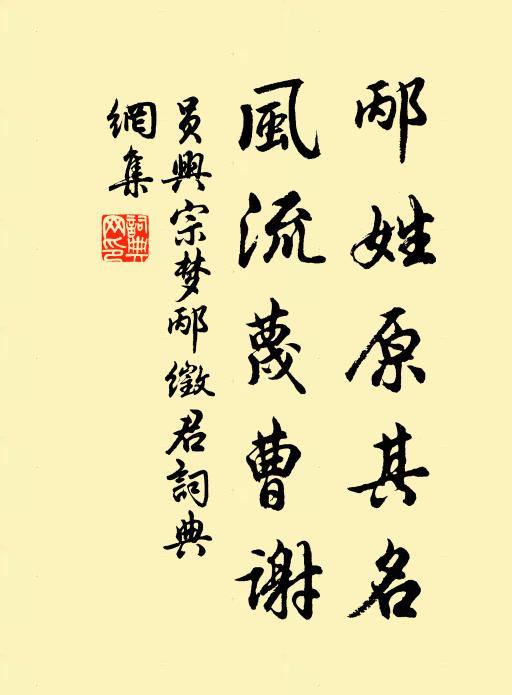 邴姓原其名
風流蔑曹謝
員興宗梦邴徵君詞典
網集
詞典网印